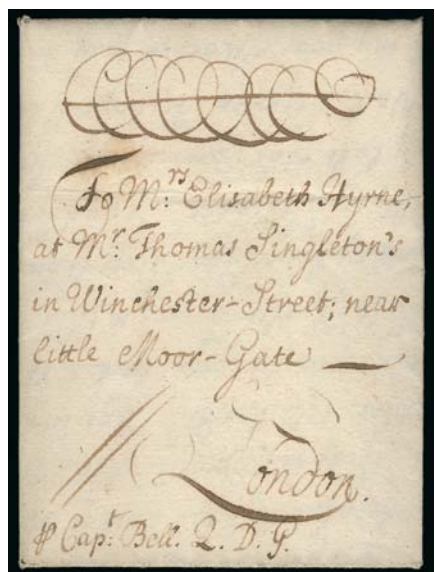 To Mrs. Elisabeth Hyrne,
at Mr. Thomas Singleton's
in Winchester-Street; near
little Moor-Gate
London.
⅌ Capt: Bell. Q. D. G.